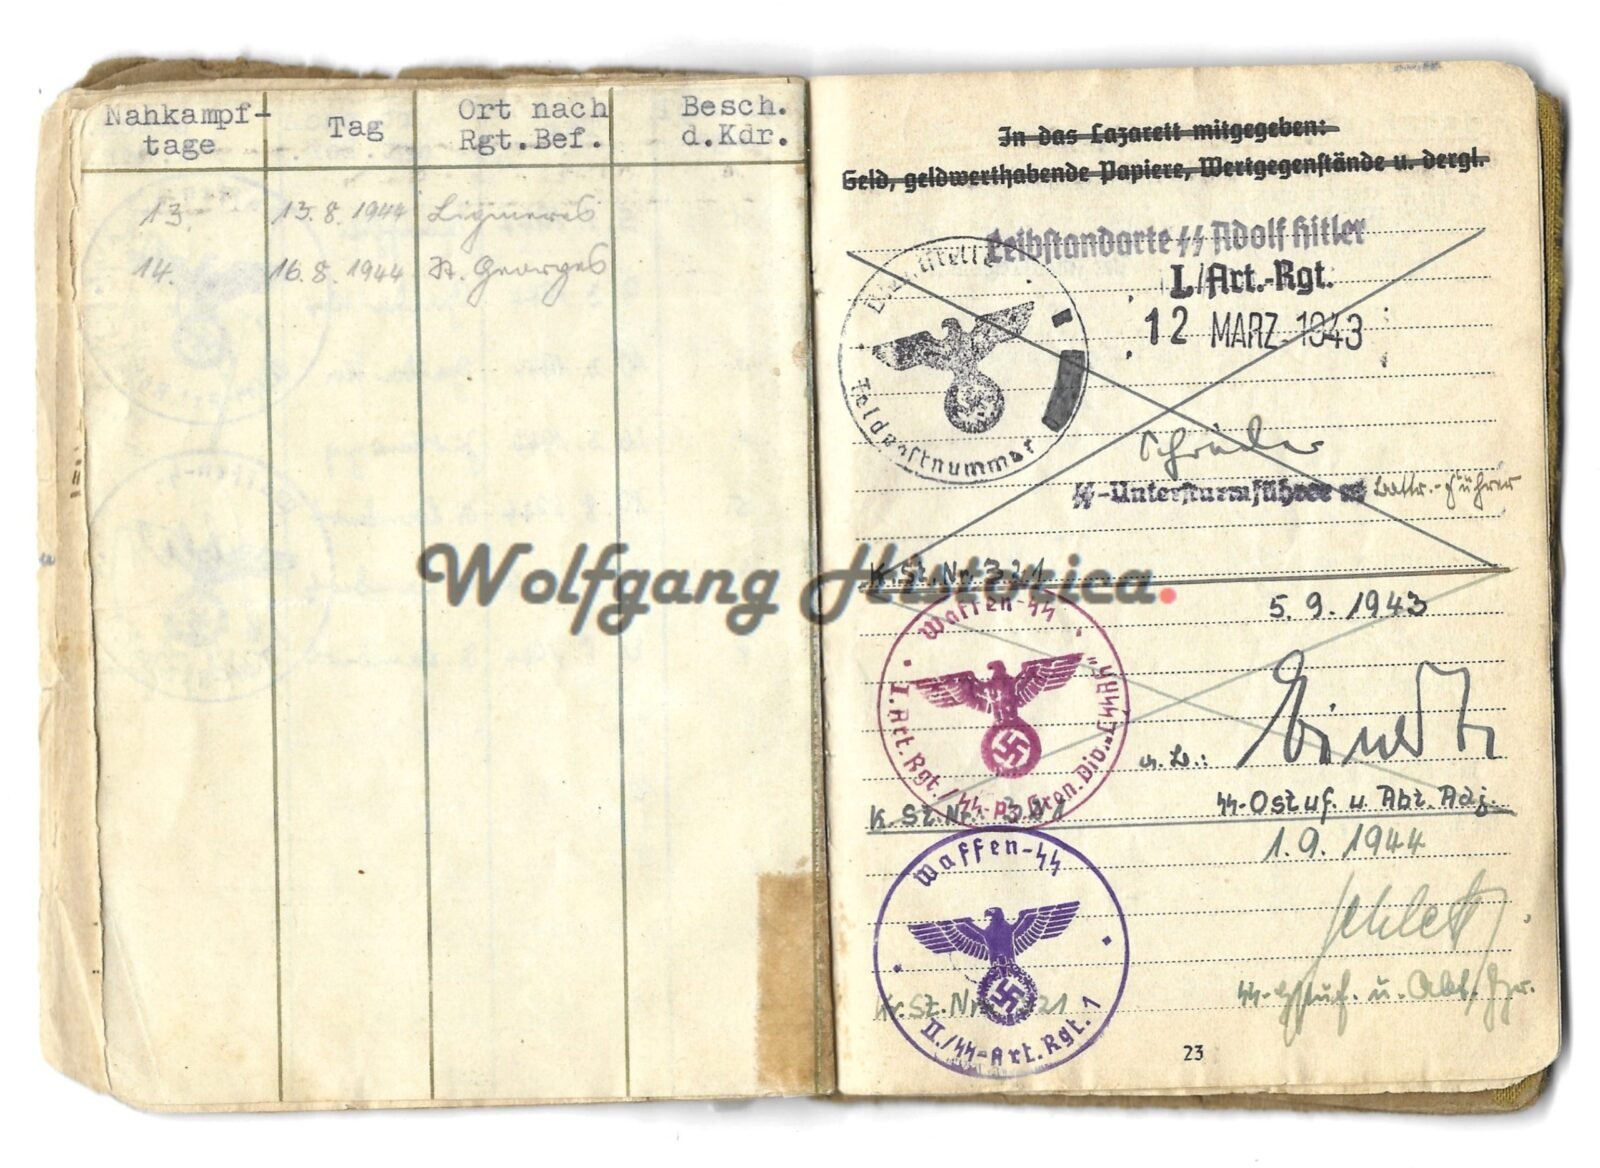 Nahkampf-
tage
Tag
Ort nach
Rgt.Bef.
Besch.
d.Kdr.
13. 13.8.1944 Ligneres
14. 16.8.1944 St. Georges
In das Lazarett mitgegeben:
Geld, geldwerthabende Papiere, Wertgegenstände u. dergl.
Leibstandarte SS Adolf Hitler
I./Art.-Rgt.
12 MÄRZ 1943
Dienststelle
Feldpostnummer
SS-Untersturmführer u. Battr.-Führer
K.St.Nr. 321
5.9.1943
Waffen-SS
I. Art. Rgt./SS-Pz. Gren. Div. "LSSAH"
SS-Ostuf. u. Abt. Adj.
K.St.Nr. 321
1.9.1944
Waffen-SS
II./SS-Art. Rgt. 1
Kr.St.Nr. 321
23
Wolfgang Historica.